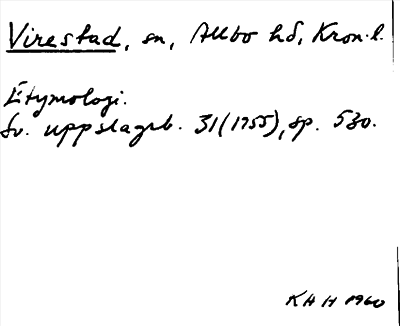 Virestad, sn, Allbo hd, Kron.l.
Etymologi.
Sv. uppslagsb. 31(1955), sp. 530.
KHH 1960